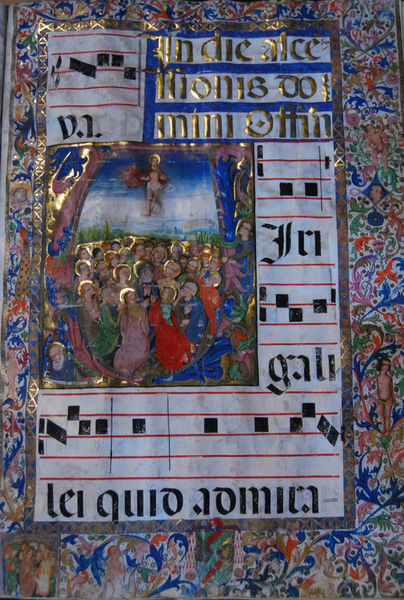 In die asce
nsionis do
va.
mini Offin
Iri
gali
lei quid admira